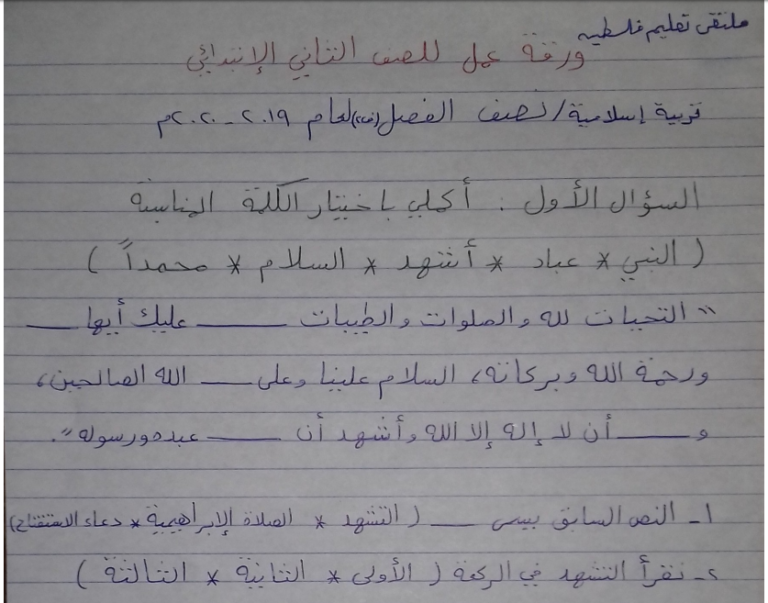 ملتقى تعليم فلسطين
ورقة عمل للصف الثاني الإبتدائي
تربية إسلامية / نصف الفصل (ف٢) لعام ٢٠١٩ - ٢٠٢٠م
السؤال الأول : أكملي باختيار الكلمة المناسبة
( النبي * عباد * أشهد * السلام * محمداً )
" التحيات لله والصلوات والطيبات ____ عليك أيها ____
ورحمة الله وبركاته، السلام علينا وعلى ____ الله الصالحين،
و____ أن لا إله إلا الله وأشهد أن ____ عبده ورسوله".
١- النص السابق يسمى ____ ( التشهد * الصلاة الإبراهيمية * دعاء الاستفتاح)
٢- نقرأ التشهد في الركعة ( الأولى * الثانية * الثالثة )